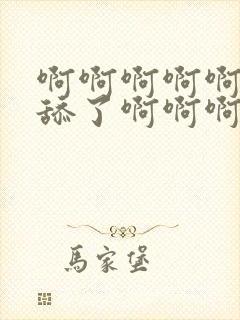 啊啊啊啊啊
舔了啊啊啊
馬家堡